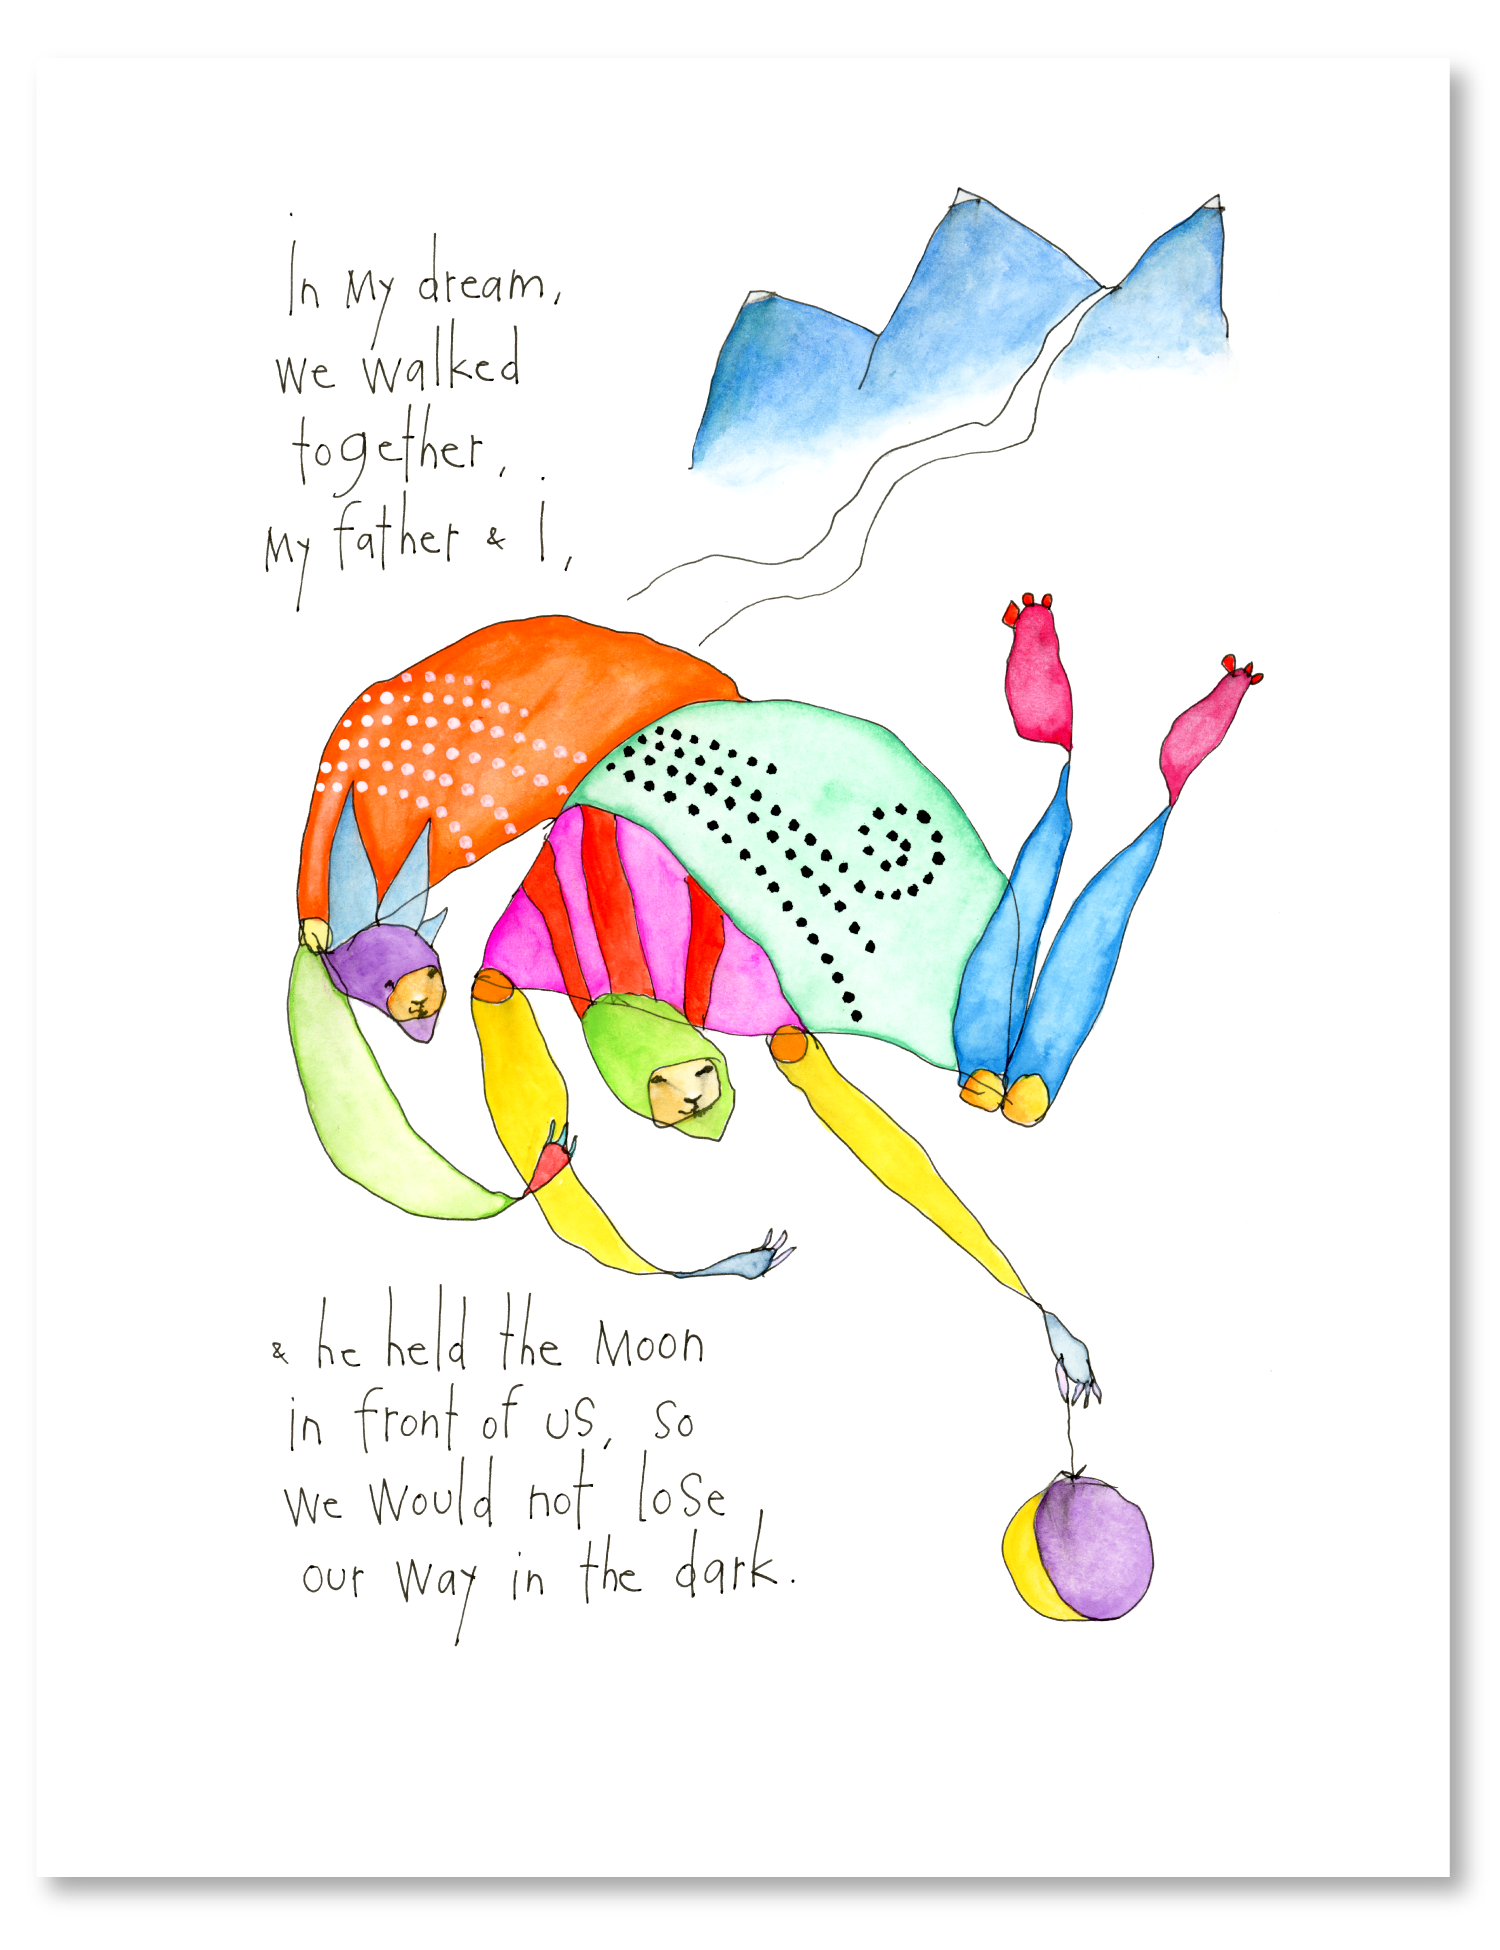 In my dream,
we walked
together,
my father & i,
& he held the Moon
in front of us, so
we would not lose
our way in the dark.